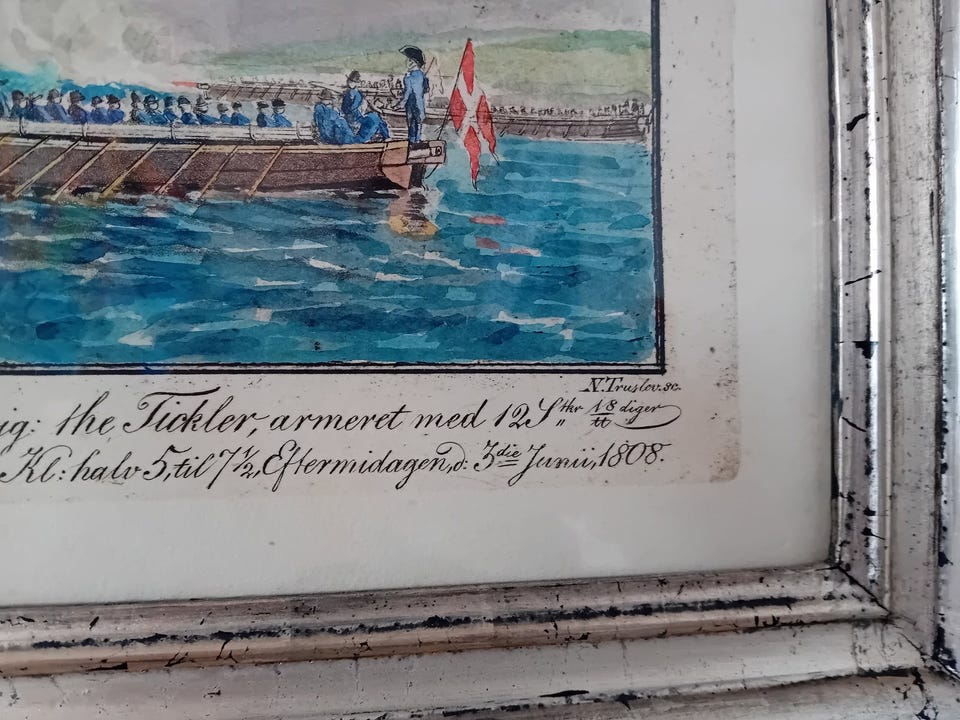 N. Truslev. sc.
ig: the Tickler, armeret med 12 Stkr 18/tt diger
Kl: halv 5, til 7 1/2, Eftermidagen, d: 3die Junii, 1808.